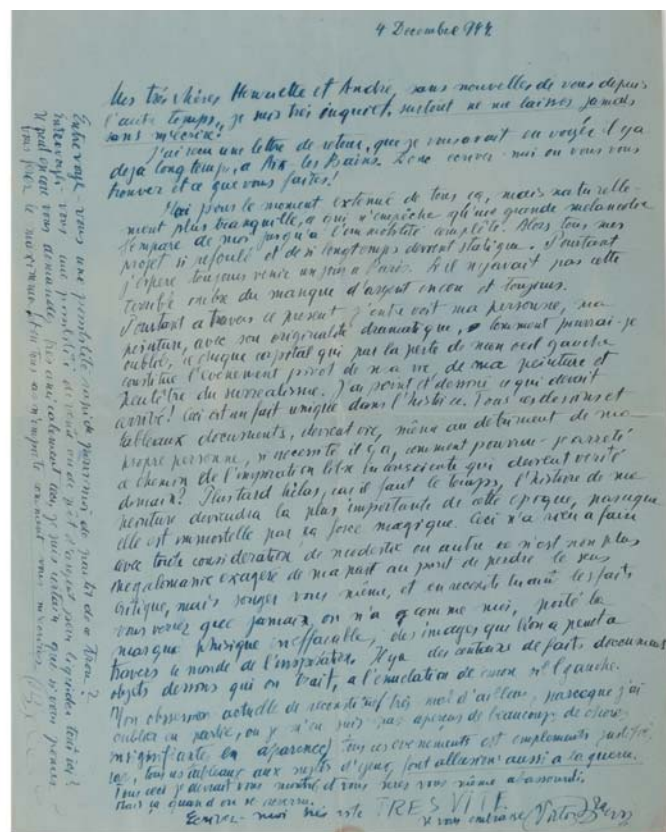 4 Decembre 1942
Mes très chères Henriette et André, sans nouvelles de vous depuis
l'autre temps, je suis très inquiet, surtout ne me laisses jamais
sans m'écrire!
J'ai reçu une lettre de retour, que je vous avait envoyée il y a
deja longtemps, a Aix les Bains. Donc ecrivez-moi ou vous vous
trouver et ce que vous faites!
Moi pour le moment extenué de tous ça, mais naturelle-
ment plus tranquille, a qui n'empêche qu'une grande melancolie
s'empare de moi jusqu'a l'immobilité complète. Alors tous mes
projet si refoulé et de si longtemps devient statique. Pourtant
j'espere toujours venir un jour a Paris. Si il n'y avait pas cette
terrible ombre du manque d'argent encore et toujours.
Pourtant a travers ce present j'entrevoit ma personne, ma
peinture, avec son originalité dramatique, comment pourrai-je
oublié, ce choque capital qui par la perte de mon oeil gauche
constitue l'evenement pivot de ma vie, de ma peinture et
peut être du surrealisme. J'ai peint et dessiné ce qui devait
arrivé! Ceci est un fait unique dans l'histoire. Tous ces dessins et
tableaux documents, devraient même au detriment de ma
propre personne, si necessité il y a, comment pourrai-je arreté
ce chemin de l'inspiration libre inconsciente qui devient verité
demain? Plus tard hélas, car il faut le temps, l'histoire de ma
peinture deviendra la plus importante de cette epoque, parceque
elle est immortelle par sa force magique. Ceci n'a rien a faire
avec toute consideration de modestie ou autre ce n'est non plus
megalomanie exagéré de ma part au point de perdre le sens
critique, mais songez vous même, et en les faits
vous verrez que jamais on n'a comme moi, porté la
marque phisique ineffaçable, des images que l'on a peint a
travers le monde de l'inspiration. Il y a des centaines de faits documents
objets dessins qui ont trait, a l'enucleation de mon oeil gauche.
Mon obsession actuelle de reconstitué très mal d'ailleurs, parceque j'ai
oublier en partie, ou je m'en suis pas aperçus de beaucoup de choses
insignifiante en aparence, tous ces evenements est amplement justifié
car, tous mes tableaux aux sujets d'yeux, font allusion aussi a la guerre.
Tous ceci je devrait vous montré et vous seres vous même abasourdi.
Mais ça quand on se reverra.
Ecrivez-moi très vite TRES VITE
je vous embrasse Victor Brauner
Entrevoyez-vous une possibilité rapide
vous une possibilité d'argent pour liquider tous ici?
vous demander, très amicalement
vous ferez le maximum.